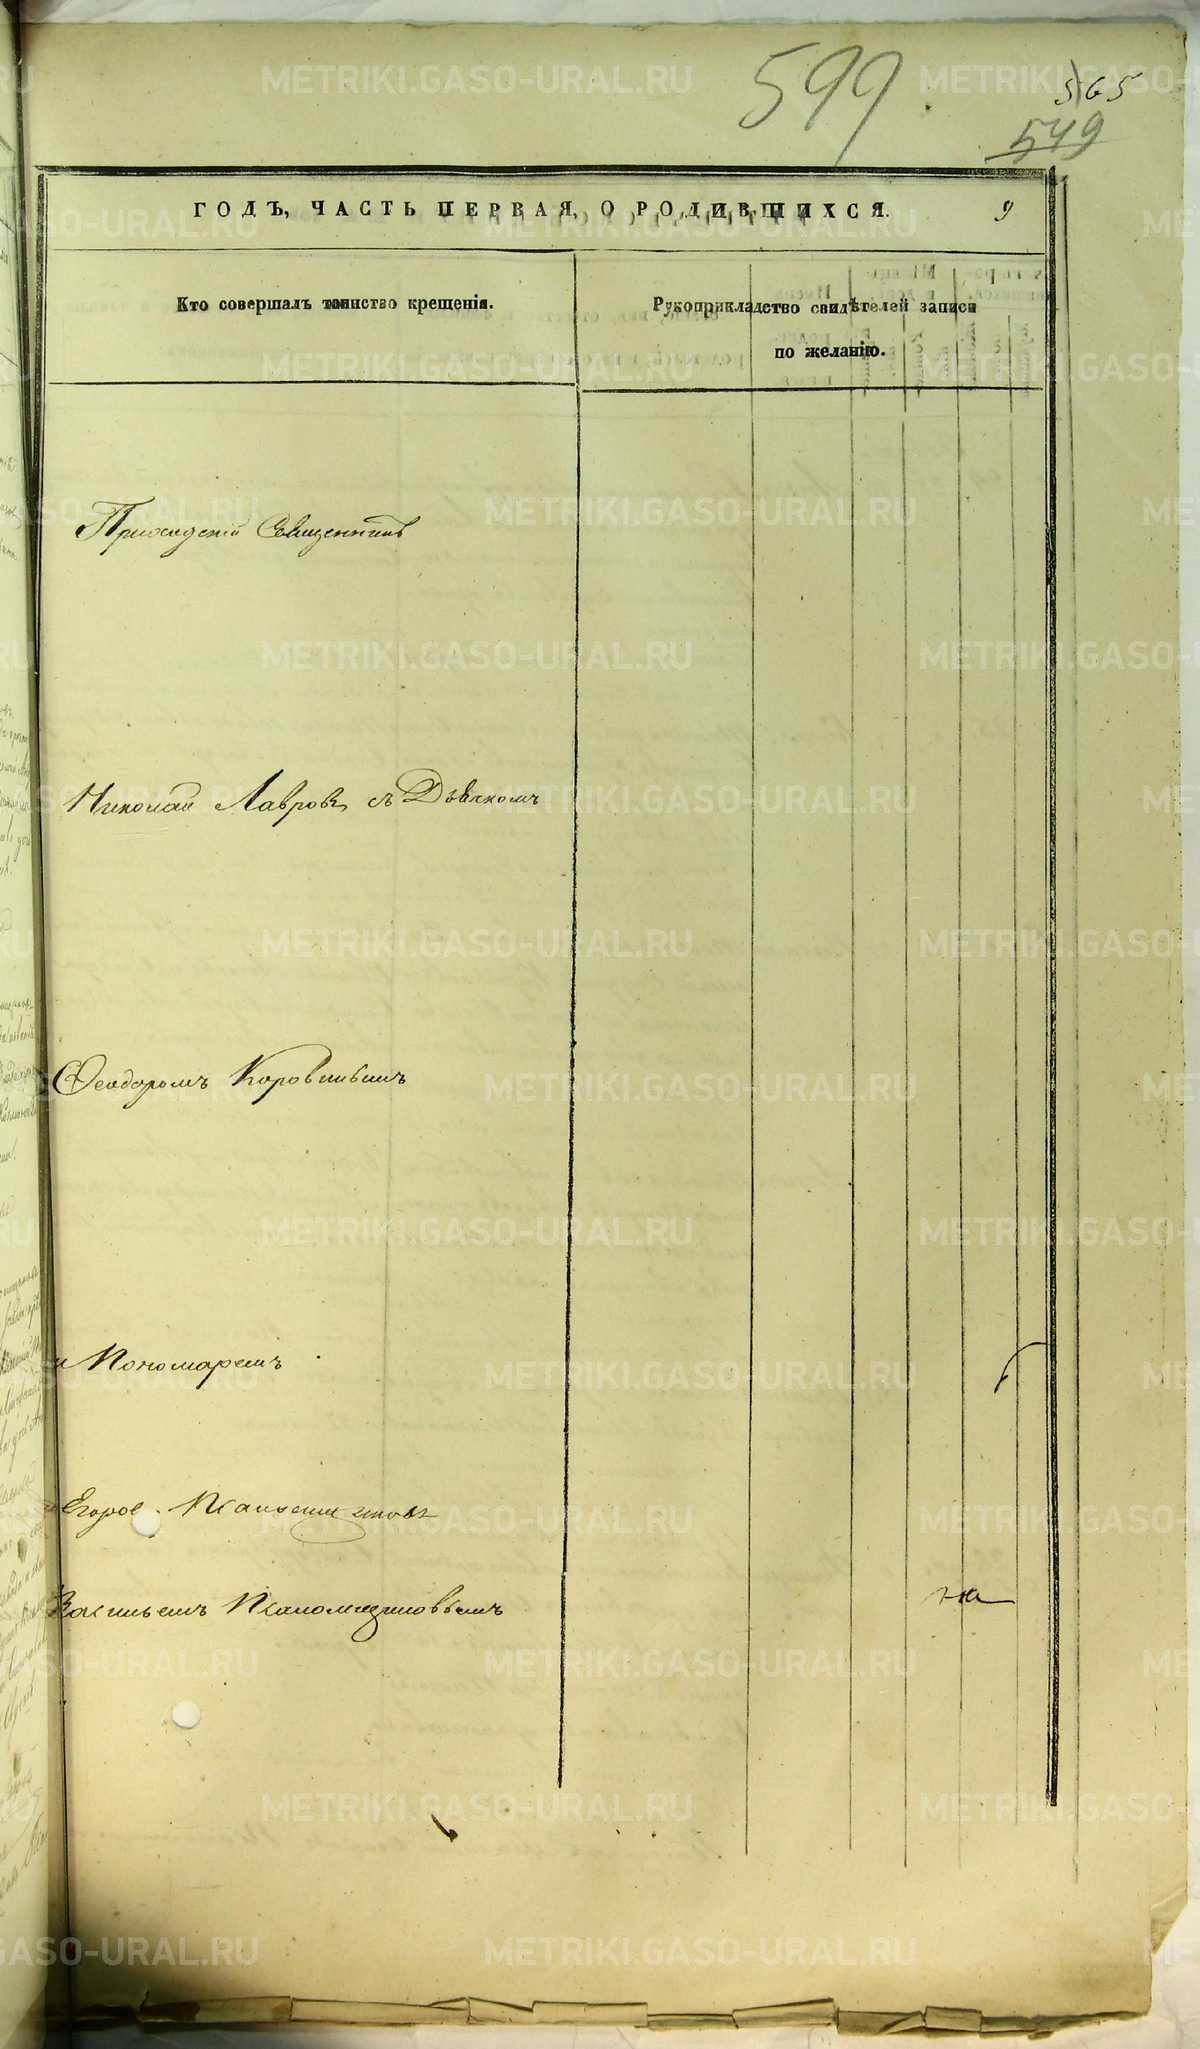 599
565
549
ГОДЪ, ЧАСТЬ ПЕРВАЯ, О РОДИВШИХСЯ. 9
Кто совершалъ таинство крещенія.
Рукоприкладство свидѣтелей записи
по желанію.
Приходскій Священникъ
Николай Лавровъ съ Дьячкомъ
Ѳеодоромъ Коровинымъ
и Пономаремъ
Василіемъ
на
METRIKI.GASO-URAL.RU